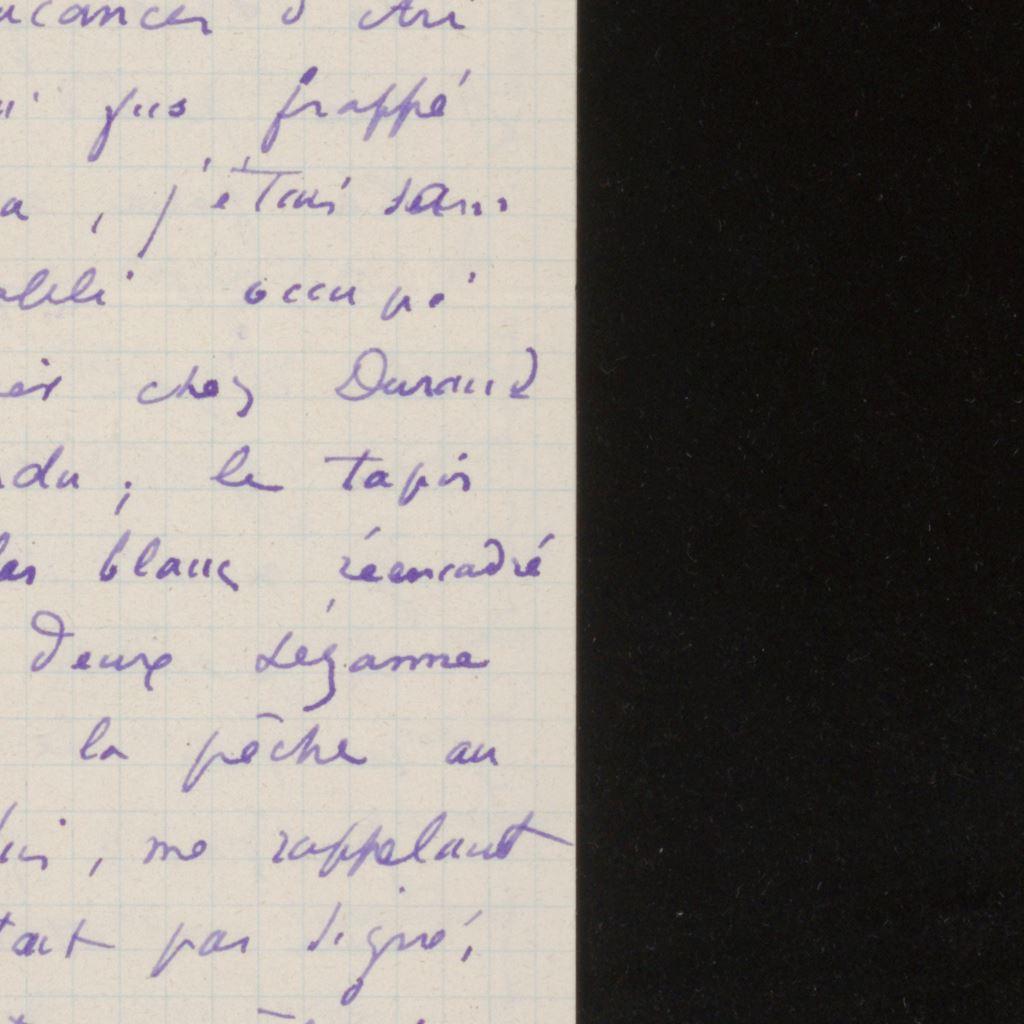 vacances d'Avi
fus frappé
a, j'étais sans
établi occupé
chez Durand
du ; le tapis
les blancs réencadré
deux Cézanne
la pêche au
lui, me rappelant
tait pas signé,